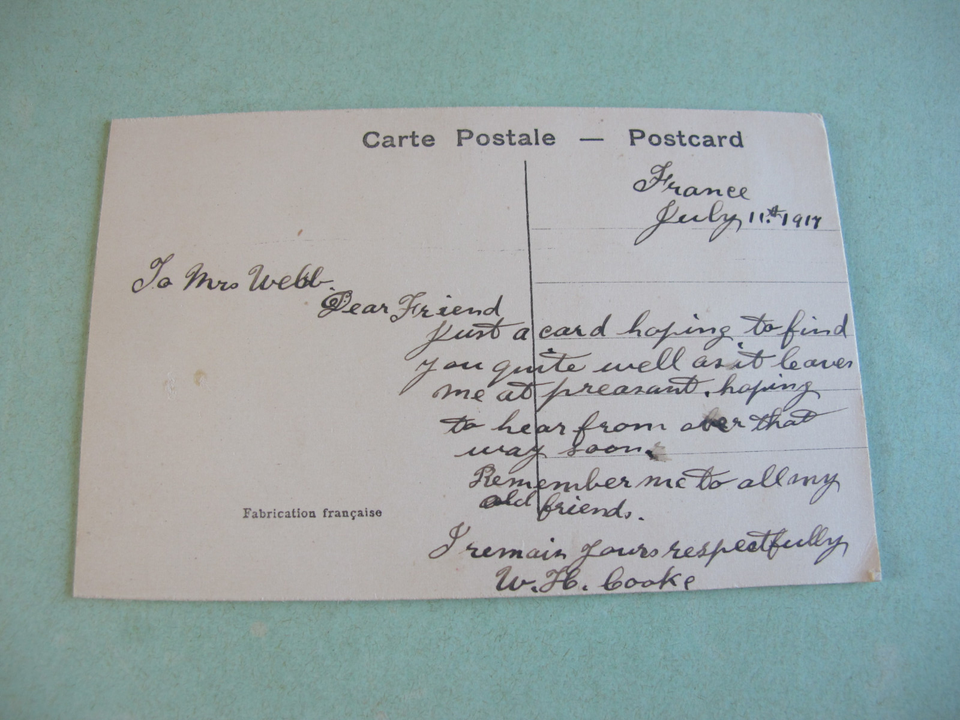 Carte Postale — Postcard
France
July 11.th 1917
To Mrs Webb.
Dear Friend
Just a card hoping to find
you quite well as it leaves
me at preasant. hoping
to hear from over that
way soon.
Remember me to all my
old friends.
I remain yours respectfully
W. H. Cooke
Fabrication française